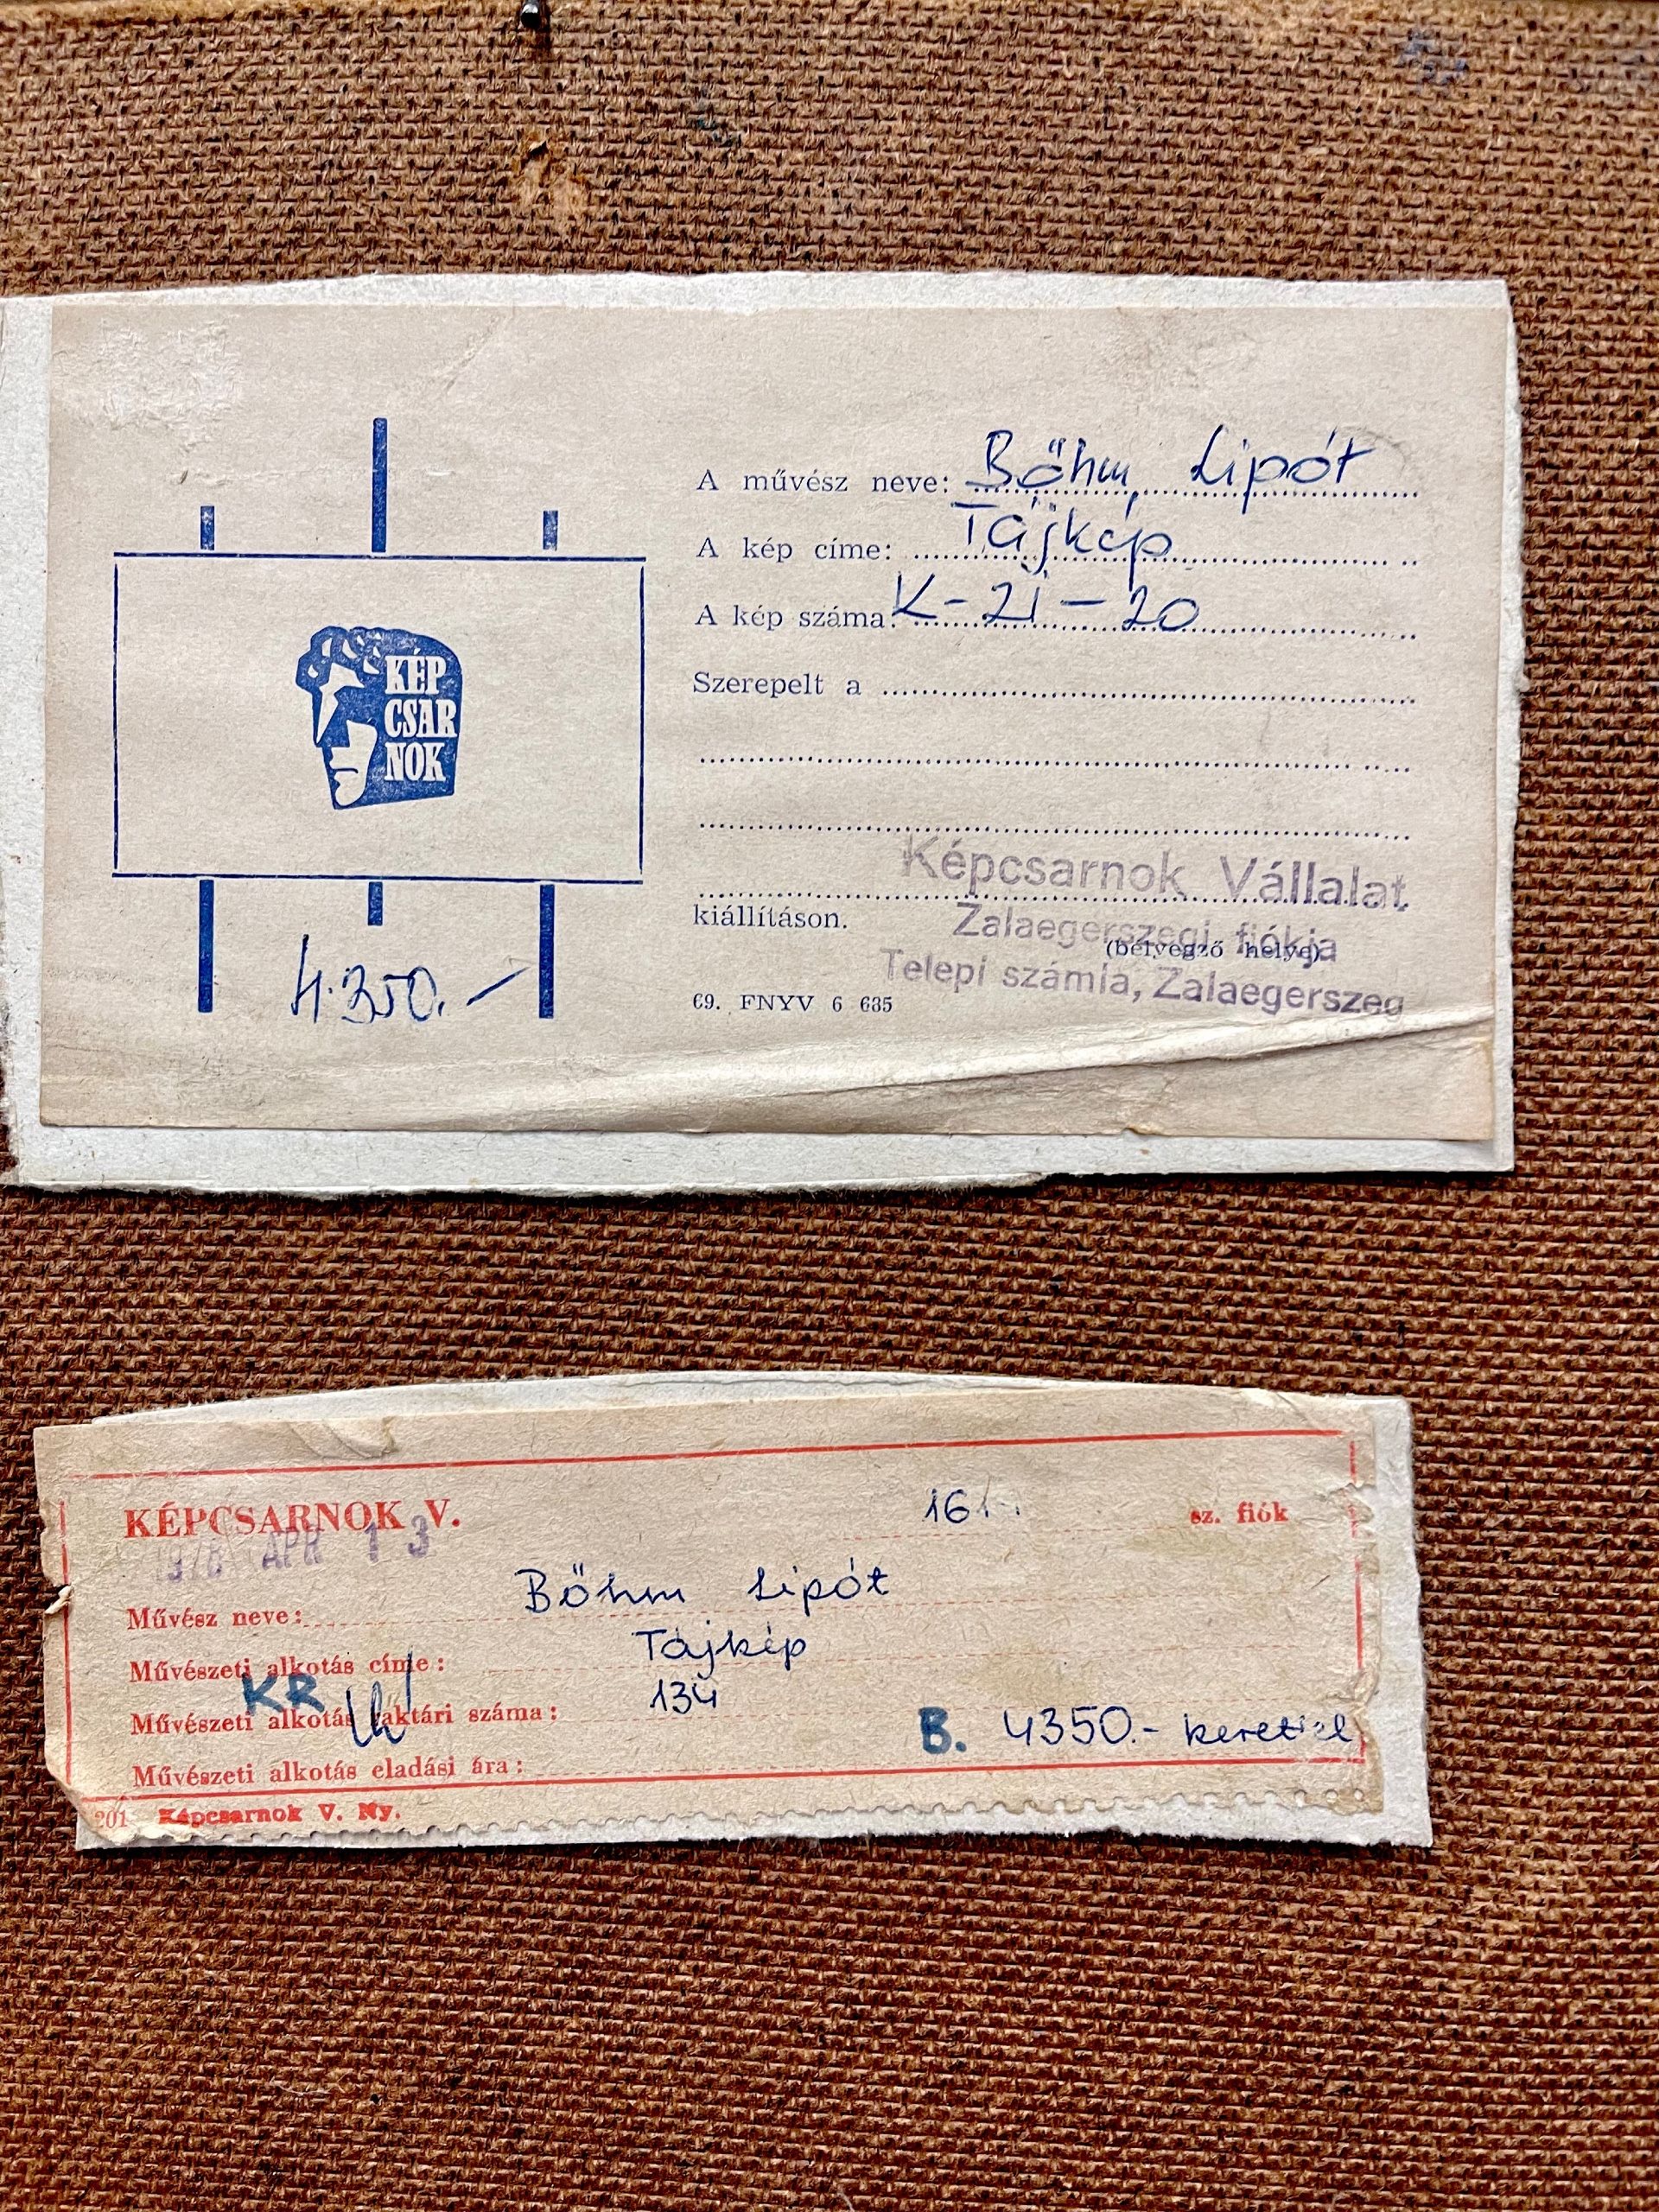 KÉP
CSAR
NOK
A művész neve: Bőhm Lipót
A kép címe: Tájkép
A kép száma: K-21-20
Szerepelt a
kiállításon.
Képcsarnok Vállalat
Zalaegerszegi fiókja
(bélyegző helye)
Telepi számla, Zalaegerszeg
4.350.-
69. FNYV 6 635
KÉPCSARNOK V. 16 sz. fiók
1978 APR 13
Művész neve: Bőhm Lipót
Művészeti alkotás címe: Tájkép
KR
Művészeti alkotás raktári száma: 134
B. 4350.- kerettel
Művészeti alkotás eladási ára:
201 Képcsarnok V. Ny.